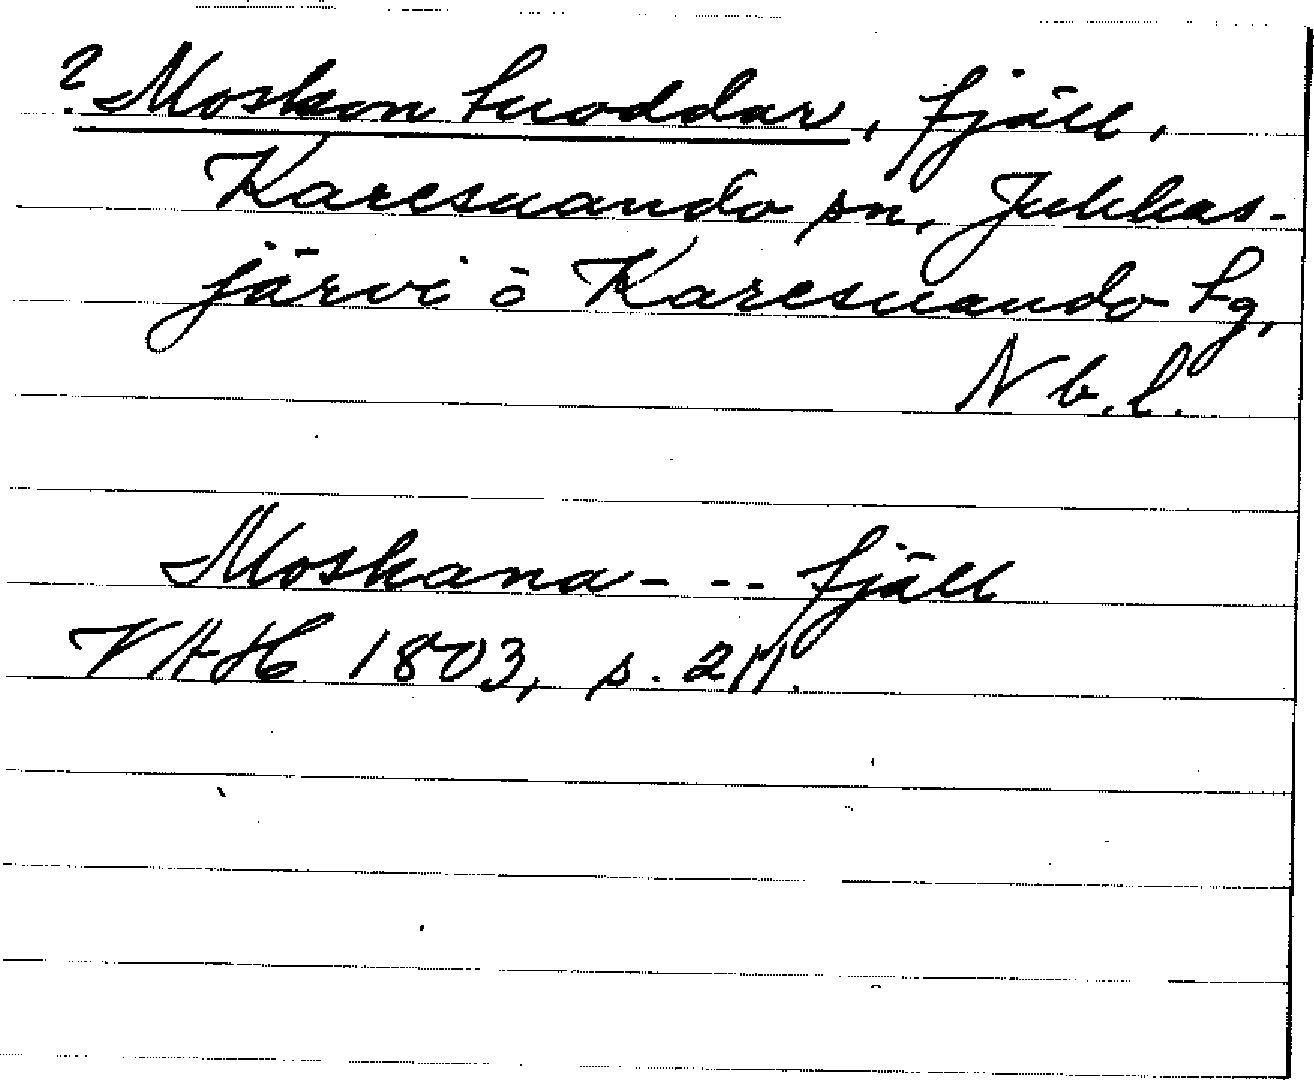 ? Moskon tuoddar, fjäll,
Karesuando sn, Jukkas-
järvi o Karesuando tg,
Nb. l.
Moskana - - - fjäll
VAH 1803, s. 211.